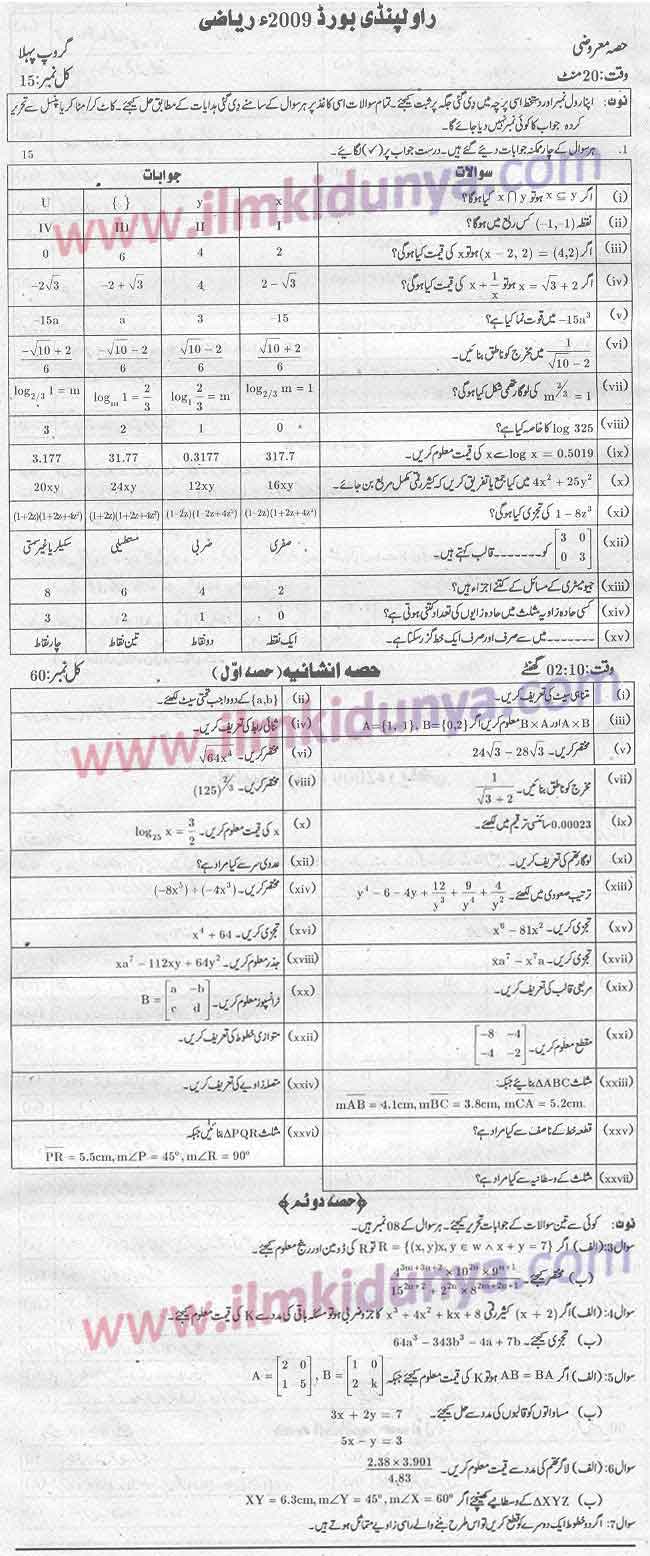 راولپنڈی بورڈ 2009ء ریاضی
حصہ معروضی
گروپ پہلا
وقت: 20 منٹ
کل نمبر: 15
نوٹ: اپنا رول نمبر اور دستخط اسی پرچہ میں دی گئی جگہ پر ثبت کیجئے۔ تمام سوالات اسی کاغذ پر ہر سوال کے سامنے دی گئی ہدایات کے مطابق حل کیجئے۔ کاٹ کر/مٹا کر یا پنسل سے تحریر
کردہ جواب کا کوئی نمبر نہیں دیا جائے گا۔
1. ہر سوال کے چار ممکنہ جوابات دیئے گئے ہیں۔ درست جواب پر (✓) لگائیے۔ 15
سوالات جوابات
(i) اگر x ⊆ y ہو تو x ∩ y کیا ہوگا؟ x y { } U
(ii) نقطہ (-1, -1) کس ربع میں ہوگا؟ I II III IV
(iii) اگر (x - 2, 2) = (4,2) ہو تو x کی قیمت کیا ہوگی؟ 2 4 6 0
(iv) اگر x = √3 + 2 ہو تو x + 1/x کی قیمت کیا ہوگی؟ 2 - √3 4 -2 + √3 -2√3
(v) -15a³ میں قوت نما کیا ہے؟ -15 3 a -15a
(vi) 1/(√10 - 2) میں مخرج کو ناطق بنائیں۔ (√10 + 2)/6 (√10 - 2)/6 (-√10 - 2)/6 (-√10 + 2)/6
(vii) m^(2/3) = 1 کی لوگارتھمی شکل کیا ہوگی؟ log_(2/3) m = 1 log_1 2/3 = m log_m 1 = 2/3 log_(2/3) 1 = m
(viii) log 325 کا خاصہ کیا ہے؟ 0 1 2 3
(ix) log x = 0.5019 سے x کی قیمت معلوم کریں۔ 317.7 0.3177 31.77 3.177
(x) 4x² + 25y² میں کیا جمع یا تفریق کریں کہ کثیر رقمی مکمل مربع بن جائے۔ 16xy 12xy 24xy 20xy
(xi) 1 - 8z³ کی تجزی کیا ہوگی؟ (1-2z)(1+2z+4z²) (1-2z)(1-2z+4z²) (1+2z)(1+2z+4z²) (1+2z)(1+2z+4z²)
(xii) [3 0; 0 3] کو ------- قالب کہتے ہیں۔ صفری ضربی مستطیلی سکیلر یا غیر سمتی
(xiii) جیومیٹری کے مسائل کے کتنے اجزاء ہیں؟ 2 4 6 8
(xiv) کسی حادہ زاویہ مثلث میں حادہ زاویوں کی تعداد کتنی ہوتی ہے؟ 0 1 2 3
(xv) ------- میں سے صرف اور صرف ایک خط گزر سکتا ہے۔ ایک نقطہ دو نقاط تین نقاط چار نقاط
وقت: 02:10 گھنٹے
حصہ انشائیہ (حصہ اوّل)
کل نمبر: 60
(i) متناہی سیٹ کی تعریف کریں۔
(ii) {a,b} کے دو واجب تحتی سیٹ لکھئے۔
(iii) A × B اور B × A معلوم کریں اگر A={1, 1}, B={0,2}
(iv) ثنائی ربط کی تعریف کریں۔
(v) مختصر کریں۔ 24√3 - 28√3
(vi) مختصر کریں۔ √64x⁴
(vii) مخرج کو ناطق بنائیں۔ 1/(√3 + 2)
(viii) مختصر کریں۔ (125)^(2/3)
(ix) 0.00023 سائنسی ترقیم میں لکھئے۔
(x) x کی قیمت معلوم کریں۔ log₂₅ x = 3/2
(xi) لوگارتھم کی تعریف کریں۔
(xii) عددی سر سے کیا مراد ہے؟
(xiii) ترتیب صعودی میں لکھئے۔ y⁴ - 6 - 4y + 12/y³ + 9/y⁴ + 4/y²
(xiv) مختصر کریں۔ (-8x⁵) ÷ (-4x³)
(xv) تجزی کریں۔ x⁶ - 81x²
(xvi) تجزی کریں۔ x⁴ + 64
(xvii) تجزی کریں۔ xa⁷ - x⁷a
(xviii) جذر معلوم کریں۔ xa⁷ - 112xy + 64y²
(xix) مربعی قالب کی تعریف کریں۔
(xx) ٹرانسپوز معلوم کریں۔ B = [a -b; c d]
(xxi) مقطع معلوم کریں۔ [-8 -4; -4 -2]
(xxii) متوازی خطوط کی تعریف کریں۔
(xxiii) مثلث ΔABC بنائیے جبکہ
mAB = 4.1cm, mBC = 3.8cm, mCA = 5.2cm.
(xxiv) متصلہ زاویے کی تعریف کریں۔
(xxv) قطعہ خط کے ناصف سے کیا مراد ہے؟
(xxvi) مثلث ΔPQR بنائیں جبکہ
PR = 5.5cm, m∠P = 45°, m∠R = 90°
(xxvii) مثلث کے وسطانیہ سے کیا مراد ہے؟
﴿حصہ دوئم﴾
نوٹ: کوئی سے تین سوالات کے جوابات تحریر کیجئے۔ ہر سوال کے 08 نمبر ہیں۔
سوال 3: (الف) اگر R = {(x,y)x, y ∈ w ∧ x + y = 7} تو R کی ڈومین اور رینج معلوم کیجئے۔
(ب) مختصر کیجئے۔
سوال 4: (الف) اگر (x + 2) کثیر رقمی x³ + 4x² + kx + 8 کا جزو ضربی ہو تو مسئلہ باقی کی مدد سے K کی قیمت معلوم کیجئے۔
(ب) تجزی کیجئے۔ 64a³ - 343b³ - 4a + 7b
سوال 5: (الف) اگر AB = BA ہو تو K کی قیمت معلوم کیجئے جبکہ A = [2 0; 1 5], B = [1 0; 2 k]
(ب) مساواتوں کو قالبوں کی مدد سے حل کیجئے۔ 3x + 2y = 7
5x - y = 3
سوال 6: (الف) لاگرتھم کی مدد سے قیمت معلوم کریں۔ (2.38 × 3.901)/4.83
(ب) ΔXYZ کے وسطانیے کھینچئے اگر XY = 6.3cm, m∠Y = 45°, m∠X = 60°
سوال 7: اگر دو خطوط ایک دوسرے کو قطع کریں تو اس طرح بننے والے راسی زاویے متماثل ہوتے ہیں۔
www.ilmkidunya.com
www.ilmkidunya.com
www.ilmkidunya.com